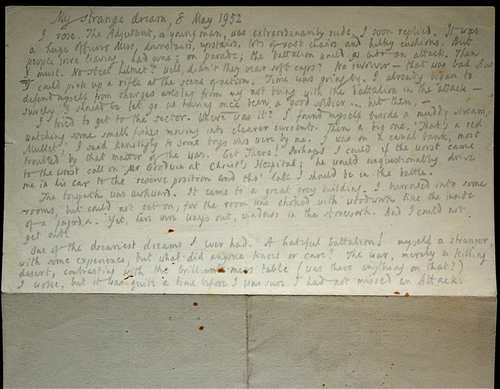 My strange dream, 8 May 1952
I rose. The Adjutant, a young man, was extraordinarily rude. I soon replied. It was
a huge Officers Mess, downstairs, upstairs, lots of vast chairs and bulky cushions. But
people were leaving had gone; on parade; the battalion was to go into an attack. Then
I must. No steel helmet? Well, didn't they wear soft caps? No revolver – that was bad. But
I could pick up a rifle at the scene of action. Time was going by. I already began to
defend myself from charges arising from my not being with the battalion in the attack –
surely I should be let go as having once been a good soldier... but then, –
I tried to get to the sector. Where was it? I found myself beside a muddy stream,
watching some small fishes moving into clearer currents. Then a big one. "That's a red
mullet", I said knowingly to some boys who were by me. I was on a canal bank, most
troubled by that matter of the war. Get There! Perhaps I could if the worst came
to the worst call on Mr Goodwin at Christ's Hospital; he would unquestionably drive
me in his car to the reserve position and tho' late I should be in the battle.
The towpath was awkward. It came to a great grey building. I burrowed into some
rooms, but could not get on, for the room was choked with woodworks like the inside
of a pagoda. Yet, here were ways out, windows in the stonework. And I could not
get out!
One of the dreariest dreams I ever had. A hateful battalion! myself a stranger,
with some experience, but what did anyone know or care? The war, merely a killing
desert, contrasting with the brilliant mess table (was there anything on that?)
I woke, but it was quite a time before I was sure I had not missed an Attack.